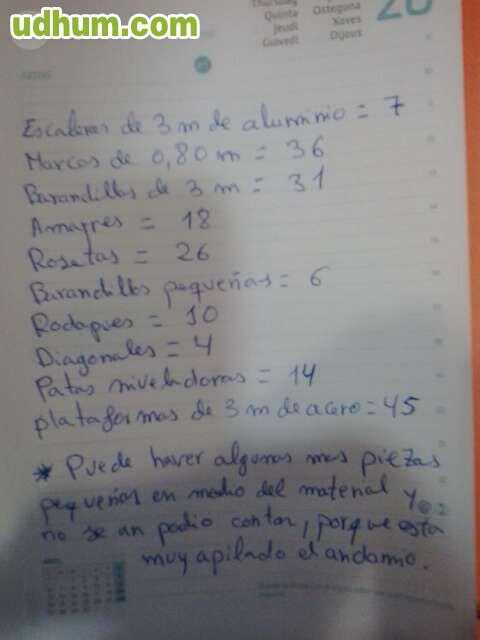 udhum.com
Thursday Osteguna
Quinta Xoves
Jeudi Dijous
Giovedì
20
Escaleras de 3 m de aluminio = 7
Marcos de 0,80 m = 36
Barandillas de 3 m = 31
Amarres = 18
Rosetas = 26
Barandillas pequeñas = 6
Rodapies = 10
Diagonales = 4
Patas niveladoras = 14
plataformas de 3 m de acero = 45
* Puede haver algunas mas piezas
pequeñas en medio del material y
no se an podio contar, porque esta
muy apilado el andamio.